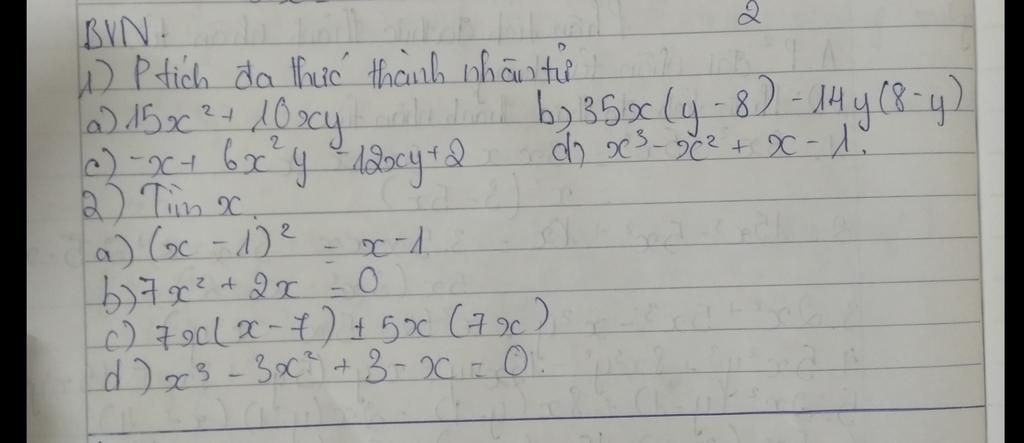 2
BVN.
1) Ptích đa thức thành nhân tử
a) 15x² + 10xy b) 35x(y - 8) - 14y(8 - y)
c) -x + 6x²y - 12xy + 2 d) x³ - x² + x - 1.
2) Tìm x.
a) (x - 1)² = x - 1
b) 7x² + 2x = 0
c) 7x(x - 7) + 5x(7x)
d) x³ - 3x² + 3 - x = 0.